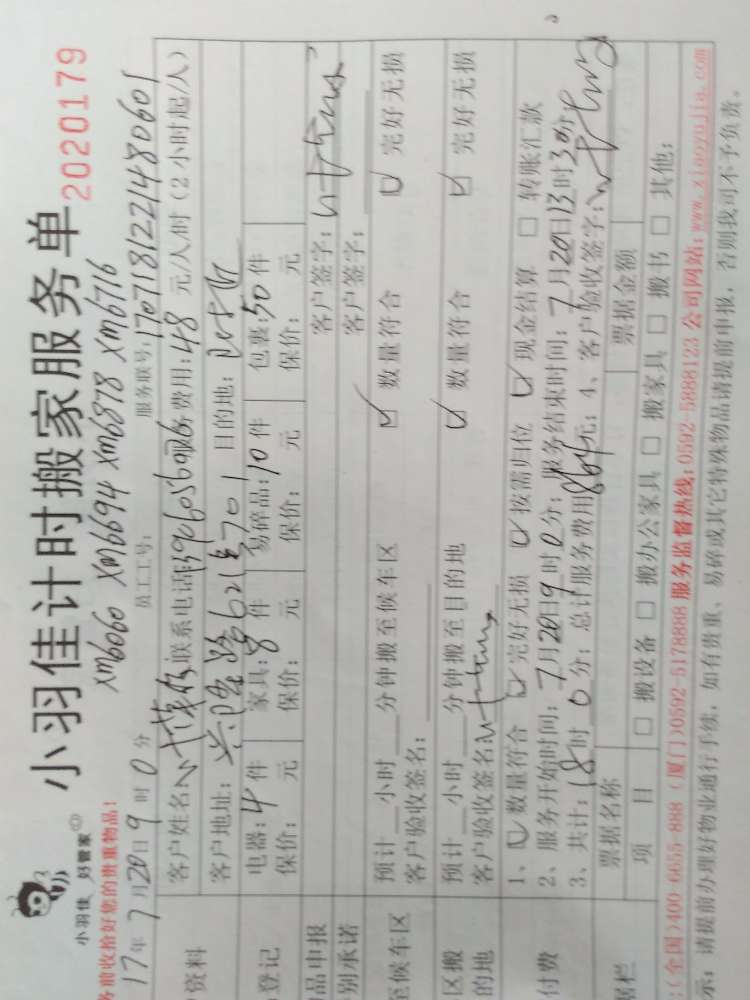 小羽佳 好管家
小羽佳计时搬家服务单
2020179
务前收拾好您的贵重物品!
xm6060 xm6694 xm6878 xm6716
17年7月20日9时0分 员工工号: 服务联号:1707181221480601
客户姓名: 联系电话: 务费用:48元/人/时(2小时起/人)
客户地址: 621号701 目的地:
户资料
电器:4件 家具:8件 易碎品:10件 包裹:50件
保价: 元 保价: 元 保价: 元 保价: 元
登记
品申报 客户签字:
别承诺 客户签字:
预计 小时 分钟搬至候车区 ☑ 数量符合 ☑ 完好无损
客户验收签名:
至候车区
预计 小时 分钟搬至目的地 ☑ 数量符合 ☑ 完好无损
客户验收签名:
区搬
的地
1、☑ 数量符合 ☑ 完好无损 ☑ 按需归位 ☑ 现金结算 □ 转账汇款
2、服务开始时间:7月20日9时0分;服务结束时间:7月20日13时30分
3、共计:18时0分;总计服务费用864元;4、客户验收签字:
付费
票据名称 票据金额
项 目 □ 搬设备 □ 搬办公家具 □ 搬家具 □ 搬书 □ 其他:
据栏
:(全国)400-6655-888 (厦门)0592-5178888 服务监督热线:0592-5888123 公司网站:www.xiaoyujia.com
示:请提前办理好物业通行手续,如有贵重、易碎或其它特殊物品请提前申报,否则我司不予负责。